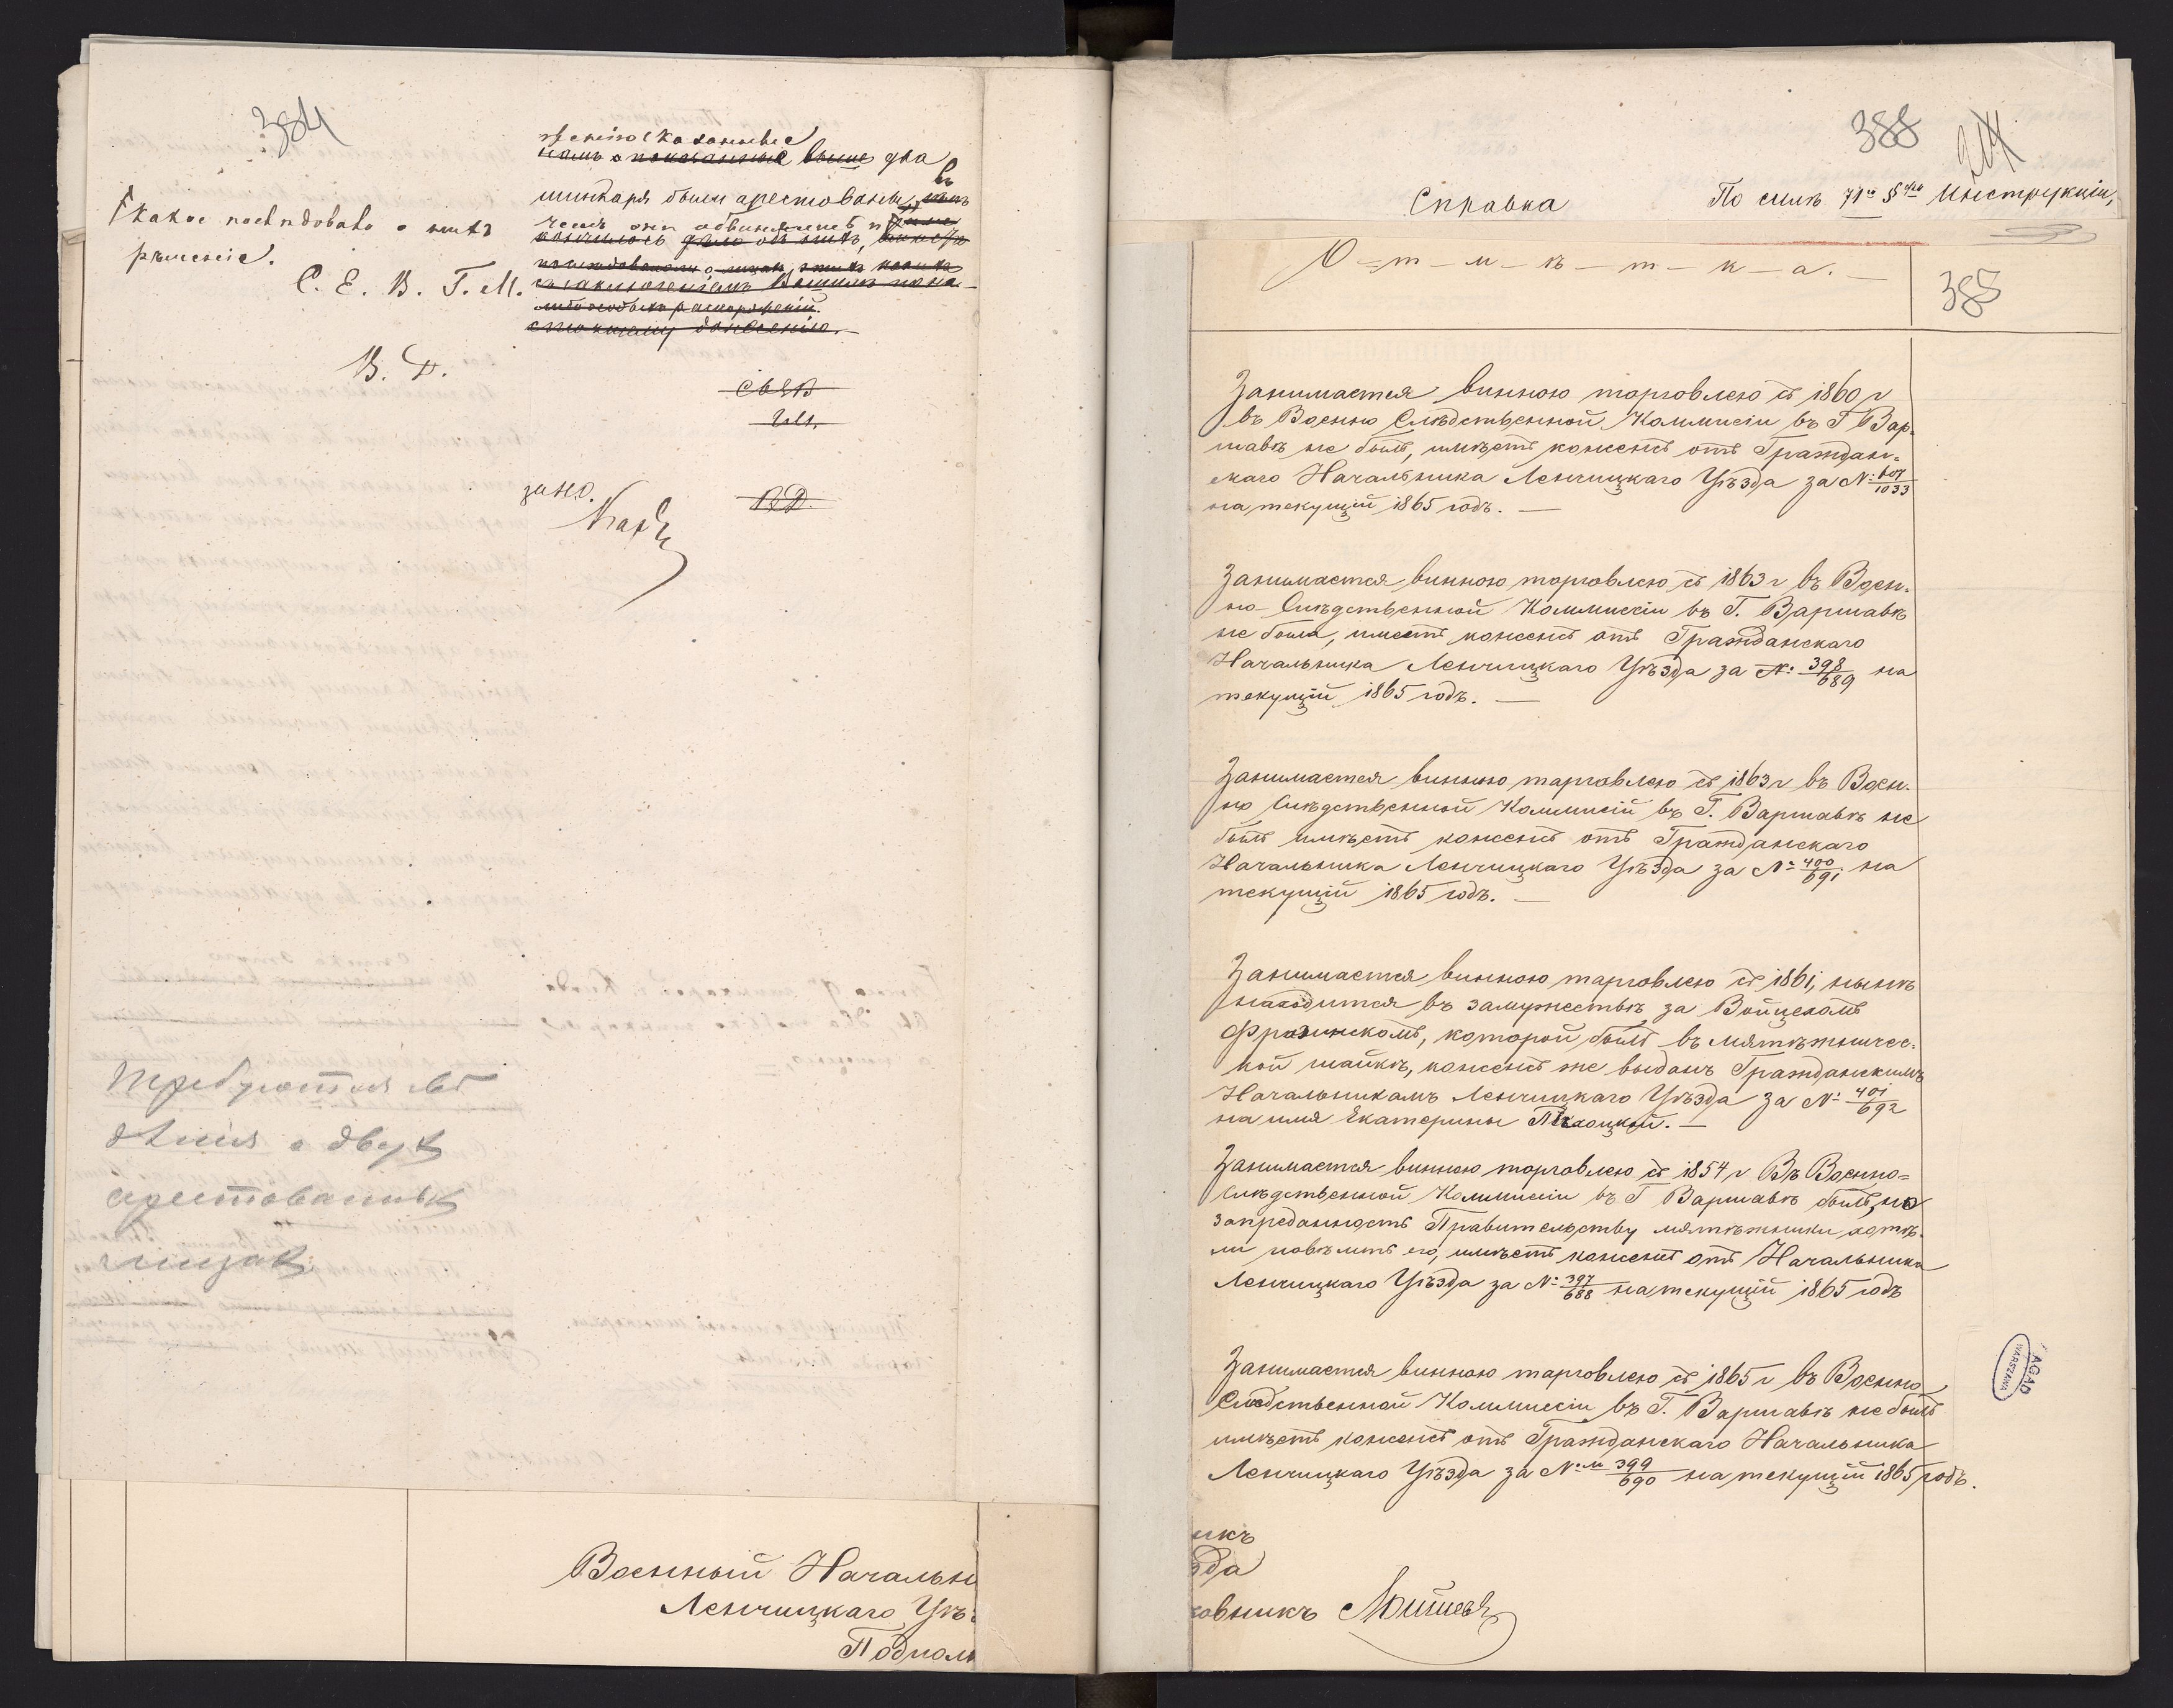 384
намъ о показанные выше два
шинкаря были арестованы, въ
чемъ они обвиняются и
какое последовало о нихъ
рѣшеніе.
С. Е. В. Г. М.
кончилось дѣло объ нихъ,
распоряженій.
донесенію.
В. Д.
СЕВ
Г.М.
В.Д.
за НО.
требуются свѣ
дѣнія о двухъ
арестованныхъ
лицахъ
Военный Начальн
Ленчицкаго Уѣ
Подпол
388
Справка
По силѣ 71го § Инструкціи,
О-т-м-ѣ-т-к-а.
385
Занимается винною торговлею съ 1860 г
въ Военно Слѣдственной Коммисіи въ Г Вар-
шавѣ не былъ, имѣетъ консенсъ отъ Граждан-
скаго Начальника Ленчицкаго Уѣзда за N: 607/1033
на текущій 1865 годъ. —
Занимается винною торговлею съ 1863 г въ Воен-
но-Слѣдственной Коммиссіи въ Г. Варшавѣ
не была, имеетъ консенсъ отъ Гражданскаго
Начальника Ленчицкаго Уѣзда за N: 398/689 на
текущій 1865 годъ. —
Занимается винною торговлею съ 1863 г въ Воен-
но Слѣдственной Коммисій въ Г. Варшавѣ не
былъ имѣетъ консенсъ отъ Гражданскаго
Начальника Ленчицкаго Уѣзда за N: 400/691 на
текущій 1865 годъ. —
Занимается винною торговлею съ 1861, нынѣ
находится въ замужествѣ за Войцехомъ
которой былъ въ мятѣжничес-
кой шайкѣ, консенсъ же выданъ Гражданскимъ
Начальникамъ Ленчицкаго Уѣзда за N: 401/692
на имя Екатерины —
Занимается винною торговлею съ 1854 г Въ Военно-
Слѣдственной Коммиссіи въ Г Варшавѣ былъ, но
за преданность Правительству мятѣжники хотѣ-
ли повѣсить его, имѣетъ консенсъ отъ Начальника
Ленчицкаго Уѣзда за N: 397/688 на текущій 1865 годъ
Занимается винною торговлею съ 1865 г въ Военно
Следственной Коммиссіи въ Г. Варшавѣ не былъ
имѣетъ консенсъ отъ Гражданскаго Начальника
Ленчицкаго Уѣзда за N: 399/690 на текущій 1865 годъ.
икъ
зда
ковникъ
AGAD
WARSZAWA